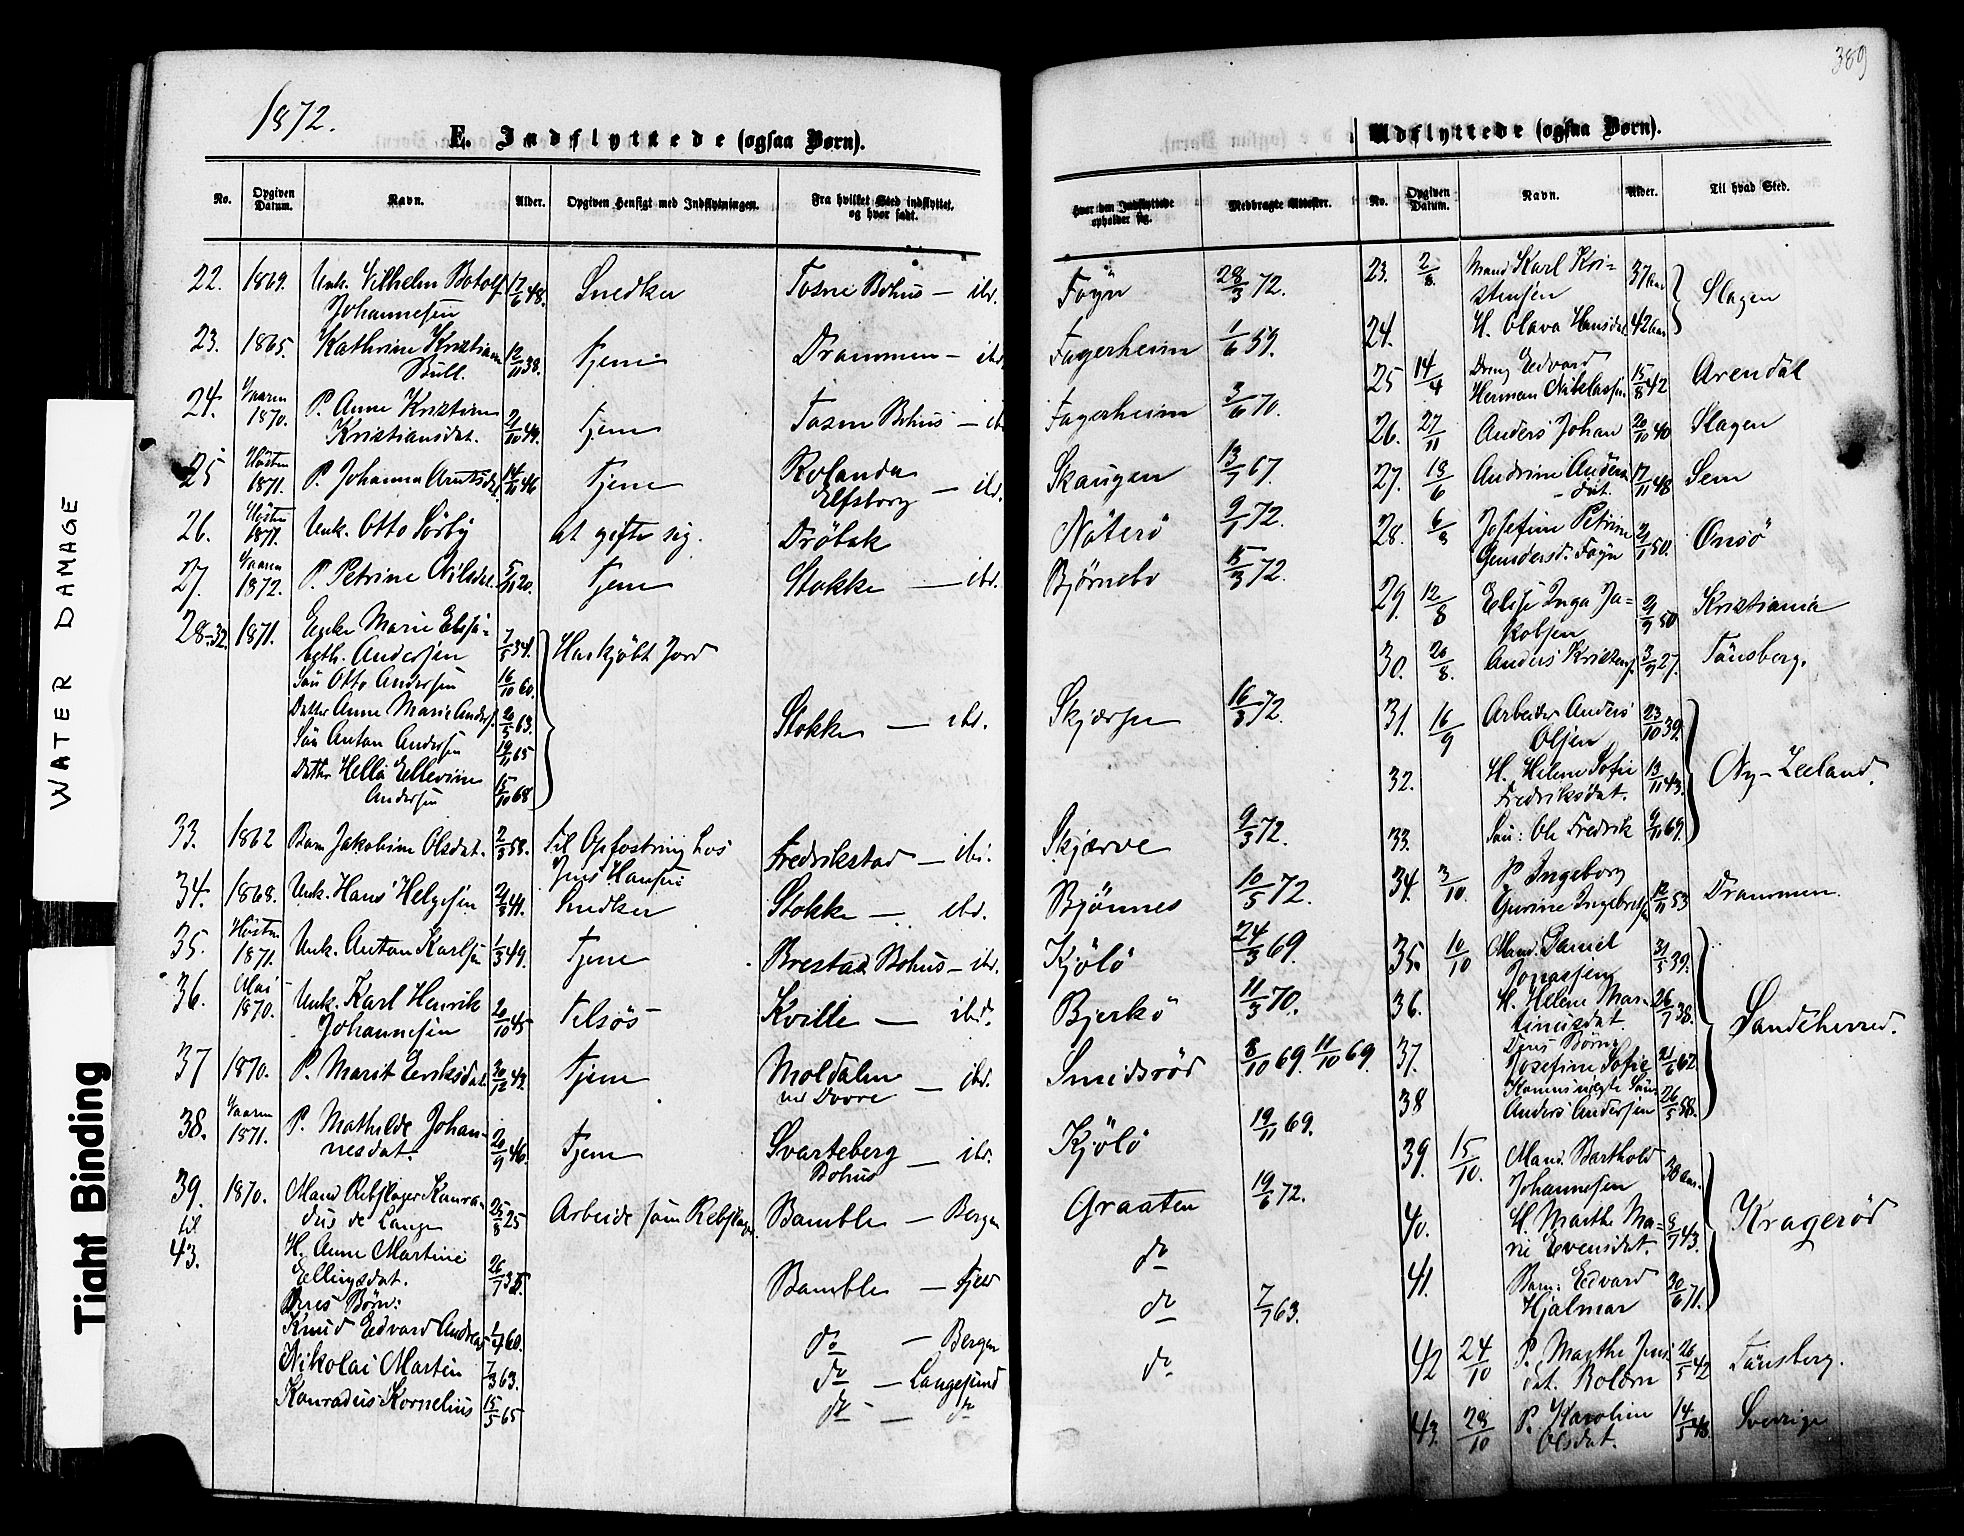 389
1872.
E. Indflyttede (ogsaa Børn).
Udflyttede (ogsaa Børn).
No.
Opgiven Datum.
Navn.
Alder.
Opgiven Hensigt med Indflytningen.
Fra hvilket Sted indflyttet, og hvor født.
Hvor den Indflyttede opholder sig.
Medbragte Attester.
No.
Opgiven Datum.
Navn.
Alder.
Til hvad Sted.
22. 1869. Unk. Vilhelm Botolf 17/6 48. Snedker Bohus – ibd. Føyn 28/3 72.
Johannesen
23. 1865. Kathrine Kristiane 12/11 38. Tjene Drammen – ibd. Fagerheim 1/6 59.
Bull.
24. Vaaren 1870. P. Anne Kristine Tjene Bohus – Fagerheim 3/6 70.
Kristiansdat.
25 Høsten 1871. P. Johanna Arntsdat. 14/11 46 Tjene Rolanda Skaugen 13/7 67.
Elfsborg – ibd.
26. Høsten 1871. Unk. Otto Sørby At gifte sig. Drøbak Nøterø 9/1 72.
27. Vaaren 1872. P. Petrine Nilsdat. 5/11 20. Tjene Stokke – ibd. Bjørnebo 15/3 72.
28–32. 1871. Enke Marie Elisa- 7/5 34.
beth Andersen Har kjøbt Jord
Søn Otto Andersen 16/10 60.
Datter Anne Marie Anders. 20/5 63. Stokke – ibd. Skjærsnes 16/3 72.
Søn Anton Andersen 19/11 65
Datter Hella Ellevine
Andersen 15/10 68
33. 1862 Barn Jakobine Olsdat. 2/3 58. Til Opfostring hos Fredrikstad – ibd. Skjærve 9/3 72.
Jens Hansen
34. 1868. Unk. Hans Helgesen 21/3 41. Snedker Stokke – ibd. Bjønnes 10/5 72.
35. Høsten 1871. Unk. Anton Karlsen 1/3 49. Tjene Brestad Bohus – ibd. Kjølø 24/3 69.
36. Mai 1870. Unk. Karl Henrik 20/10 45 Tilsøs Kville – ibd. Bjerkø 11/3 70.
Johannesen
37 1870. P. Marit Eriksdat. 30/12 42. Tjene Moldalen – ibd. Smidsrød 8/10 69. 11/10 69.
38. Vaaren 1871. P. Mathilde Johan- 20/9 46. Tjene Svarteberg – ibd. Kjølø 19/11 69.
nesdat. Bohus
39. til 43. 1870. Mand Rebslager Konra- 25/8 25 Arbeide som Rebslager Bamble – Bergen Graaten 19/6 72.
dus de Lange
H. Anne Martine 26/7 35 Bamble do
Ellingsdat.
Deres Børn:
Knud Edvard Andreas 1/4 60. do – Bergen do 7/7 63.
Nikolai Martin 7/3 63. do – Langesund do
Konradus Kornelius 15/5 65 do – do
23. 2/8. Mand Karl Kri- 37 aar Slagen
stensen
24. H. Olava Hansdat. 42 aar
25 14/4 Dreng Edvard 15/8 42 Arendal
Herman Nikolaisen
26. 27/11 Anders Johan 20/10 40 Slagen
27. 18/6 Andrine Anders- 17/11 48 Sem
dat.
28. 6/8 Josefine Petrine 21/1 50. Onsø
Gundersd. Føyn
29. 12/8 Elise Inga Ja- 2/9 50 Kristiania
kobsen
30. 20/8. Anders Kristens. 3/9 27. Tønsberg.
31. 16/9 Arbeider Anders 23/10 39. Ny-Zeeland.
Olsen
32. H. Helene Sofie 13/11 43.
Fredriksdat.
33. Søn: Ole Fredrik 9/11 69.
34. 3/10. P. Ingeborg 12/11 53 Drammen.
Gurine Ingebretsen
35. 10/10 Mand. Daniel 31/5 39. Sandeherred.
Jonassen
36. H. Helene Mar- 26/7 38.
tinusdat.
Deres Børn
37. Josefine Sofie 21/6 62.
Konens uægte Søn
38 Anders Andersen 26/5 58.
39. 15/10. Mand. Barthold 30 aar. Kragerød
Johannesen
40. H. Marthe Ma- 8/7 43.
rie Evensdat.
41. Barn: Edvard 30/6 71.
Hjalmar
42 24/10 P. Marthe Jens- 26/5 42 Tønsberg.
dat. Bolærn
43. 28/10 P. Karoline 14/5 48. Sverrige
Olsdat.
WATER DAMAGE
Tight Binding